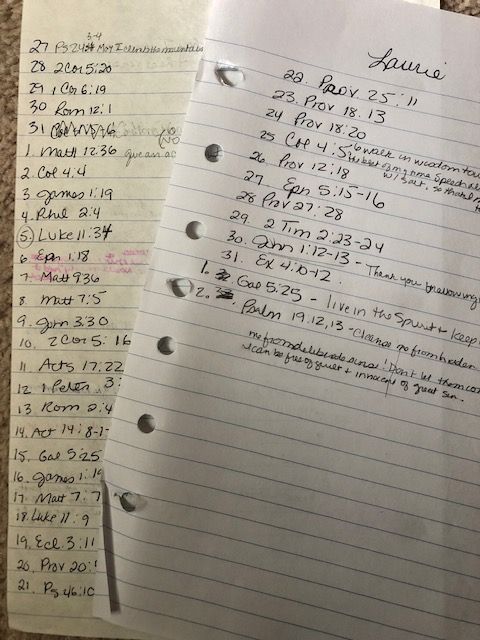 3-4
27 Ps 24 May I climb the mountain
28 2 Cor 5:20
29 1 Cor 6:19
30 Rom 12:1
31
1. Matt 12:36 give an ac
2. Col 4:4
3 James 1:19
4. Phil 2:4
5. Luke 11:34
6 Eph 1:18
7. Matt 9:36
8 Matt 7:5
9. John 3:30
10. 2 Cor 5:16
11 Acts 17:22
12 1 Peter 3:
13 Rom 2:4
14. Act 14:8-1
15. Gal 5:25
16. James 1:19
17. Matt 7:7
18. Luke 11:9
19. Ecl. 3:11
20. Prov 20:
21. Ps 46:10
Laurie
22. Prov 25:11
23. Prov 18.13
24 Prov 18:20
25 Col 4:5-6 walk in wisdom tow
the best of my time. Speech al
w/ salt. So that I
26. Prov 12:18
27 Eph 5:15-16
28 Prv 27:28
29. 2 Tim 2:23-24
30. John 1:12-13 - Thank you
31. Ex 4:10-12.
1. Gal 5:25 - live in the Spirit + keep
2. Psalm 19.12,13 - Cleanse me from hidden
me from deliberate sins! Don't let them con
I can be free of guilt + innocent of great sin.